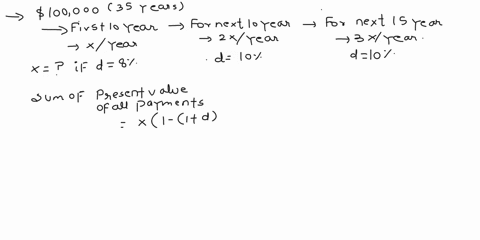 → $100,000 (35 years)
→ First 10 year → For next 10 year → For next 15 year
→ x/year → 2x/year → 3x/year
x = ? if d = 8% d = 10% d = 10%
Sum of present value
of all payments
= x(1-(1+d)